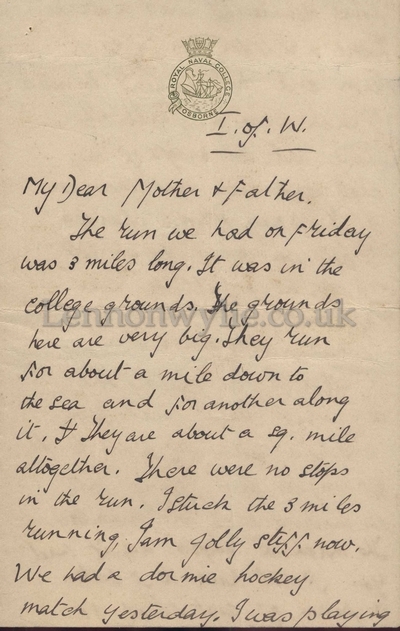 ROYAL NAVAL COLLEGE
OSBORNE
I. of. W.
My Dear Mother & Father.
The run we had on Friday
was 3 miles long. It was in the
college grounds. The grounds
Lennonwylie.co.uk
here are very big. They run
for about a mile down to
the sea and for another along
it. They are about a sq. mile
altogether. There were no stops
in the run. I stuck the 3 miles
running, I am jolly stiff now.
We had a dormie hockey
match yesterday. I was playing